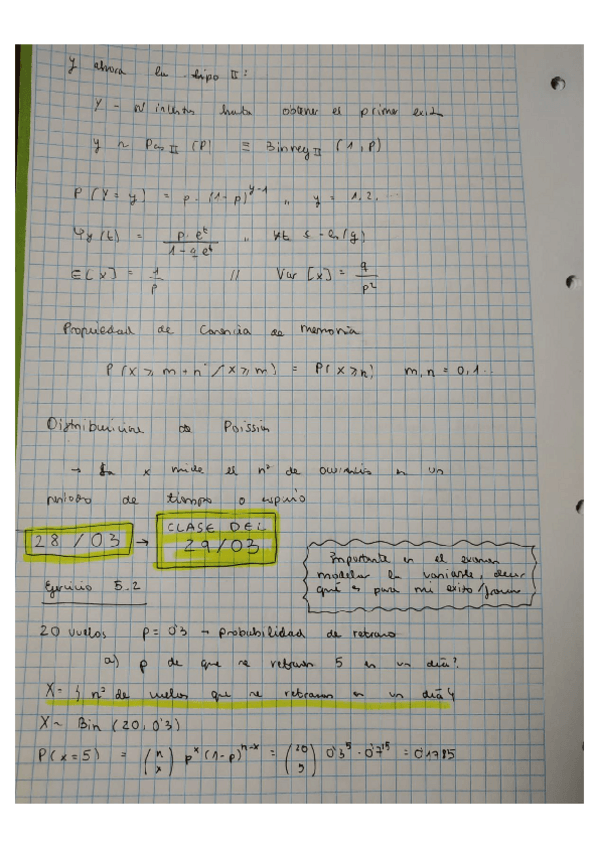 Y ahora la tipo II:
Y - nº intentos hasta obtener el primer exito
y ~ Pas II (P) ≡ Bin neg II (1, p)
P (Y = y) = p · (1-p)^y-1 ,, y = 1, 2, ...
φx(t) = p · e^t / 1 - q e^t ,, ∀t ≤ -ln(q)
E[X] = 1/p // Var [X] = q/p²
Propiedad de Carencia de memoria
P (X ≥ m + n / X ≥ m) = P( X ≥ n) m, n = 0, 1...
Distribución de Poisson
→ x mide el nº de en un
periodo de tiempo o espacio
28 / 03 → CLASE DEL 29/03
Importante en el examen
modelar la variable, decir
qué es para mi exito/
Ejercicio 5.2
20 vuelos p = 0'3 → probabilidad de retraso
a) p de que se retrasen 5 en un día?
X = { nº de vuelos que se retrasan en un día }
X ~ Bin (20, 0'3)
P(x=5) = (n x) p^x (1-p)^n-x = (20 5) 0'3^5 · 0'7^15 = 0'1785